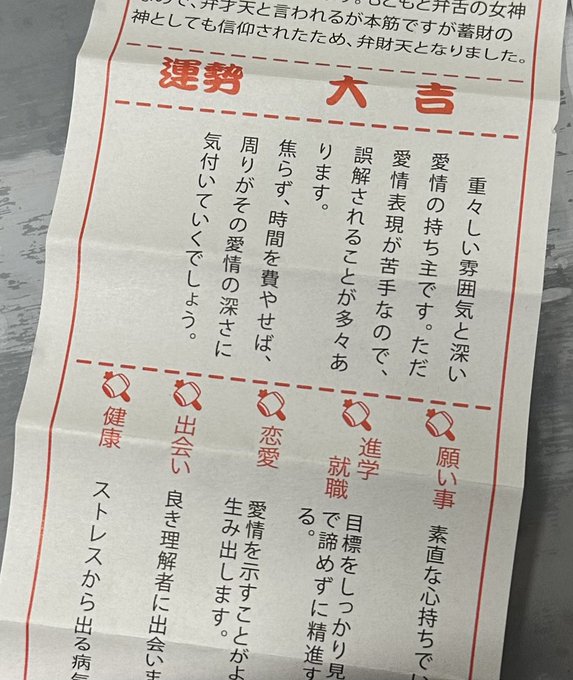 もともと弁舌の女神
で、弁才天と言われるが本筋ですが蓄財の
神としても信仰されたため、弁財天となりました。
運勢 大吉
重々しい雰囲気と深い
愛情の持ち主です。ただ
愛情表現が苦手なので、
誤解されることが多々あ
ります。
焦らず、時間を費やせば、
周りがその愛情の深さに
気付いていくでしょう。
願い事
素直な心持ちでい
進学
就職
目標をしっかり見
で諦めずに精進す
る。
恋愛
愛情を示すことがよ
生み出します。
出会い
良き理解者に出会いま
健康
ストレスから出る病気